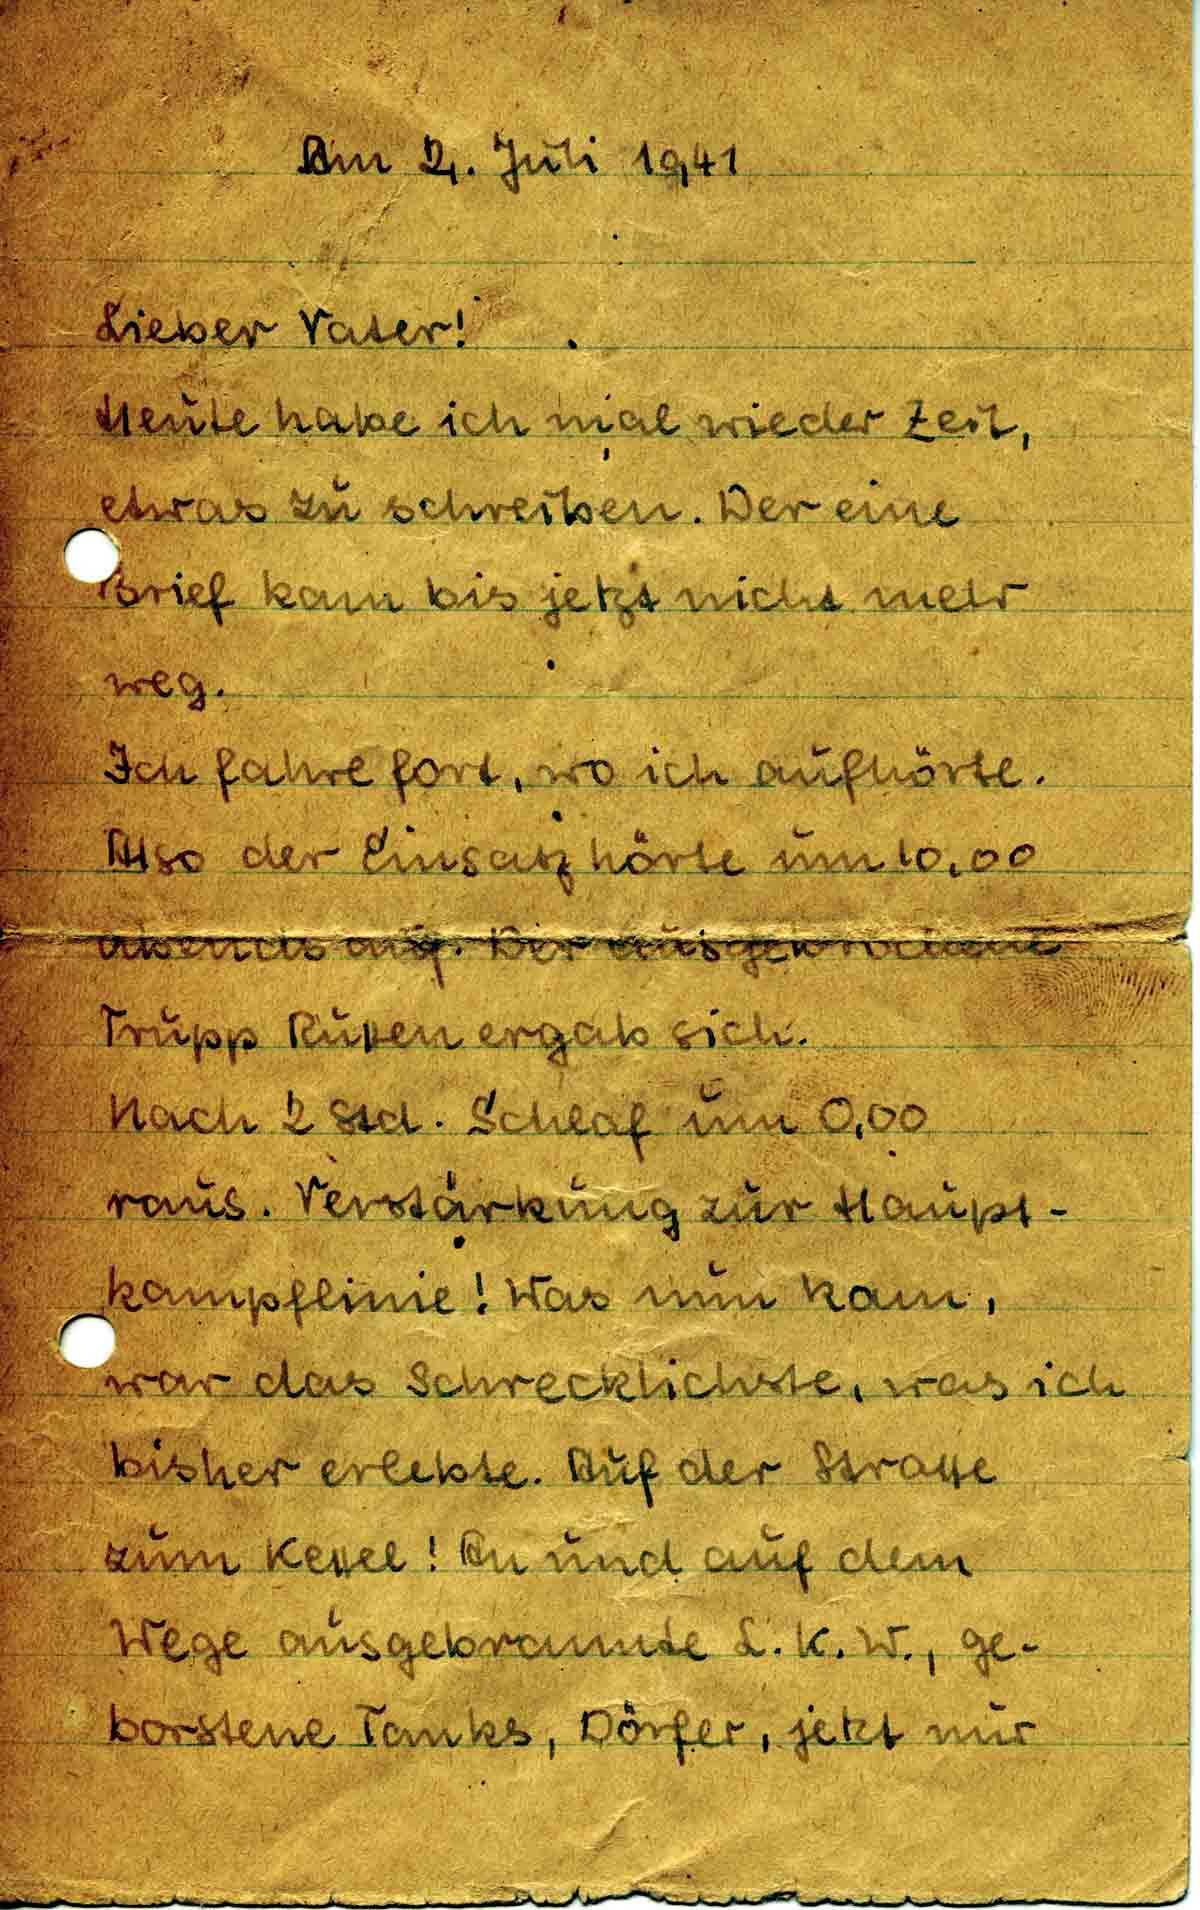 Am 2. Juli 1941
Lieber Vater!
Heute habe ich mal wieder Zeit,
etwas zu schreiben. Der eine
Brief kam bis jetzt nicht mehr
weg.
Ich fahre fort, wo ich aufhörte.
Also der Einsatz hörte um 10,00
abends auf. Der ausgebrochene
Trupp Russen ergab sich.
Nach 2 Std. Schlaf um 0,00
raus. Verstärkung zur Haupt-
kampflinie! Was nun kam,
war das Schrecklichste, was ich
bisher erlebte. Auf der Strasse
zum Kessel! An und auf dem
Wege ausgebrannte L.K.W., ge-
borstene Tanks, Dörfer, jetzt nur